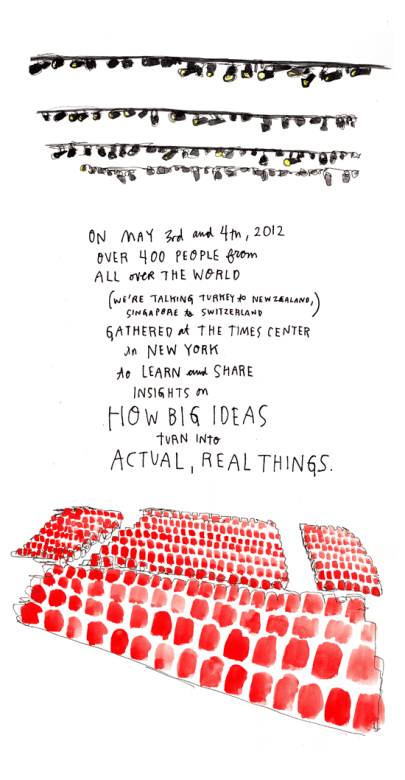 ON MAY 3rd and 4th, 2012
OVER 400 PEOPLE from
ALL over THE WORLD
(WE'RE TALKING TURKEY to NEW ZEALAND,
SINGAPORE to SWITZERLAND)
GATHERED at THE TIMES CENTER
in NEW YORK
to LEARN and SHARE
INSIGHTS on
HOW BIG IDEAS
TURN INTO
ACTUAL, REAL THINGS.